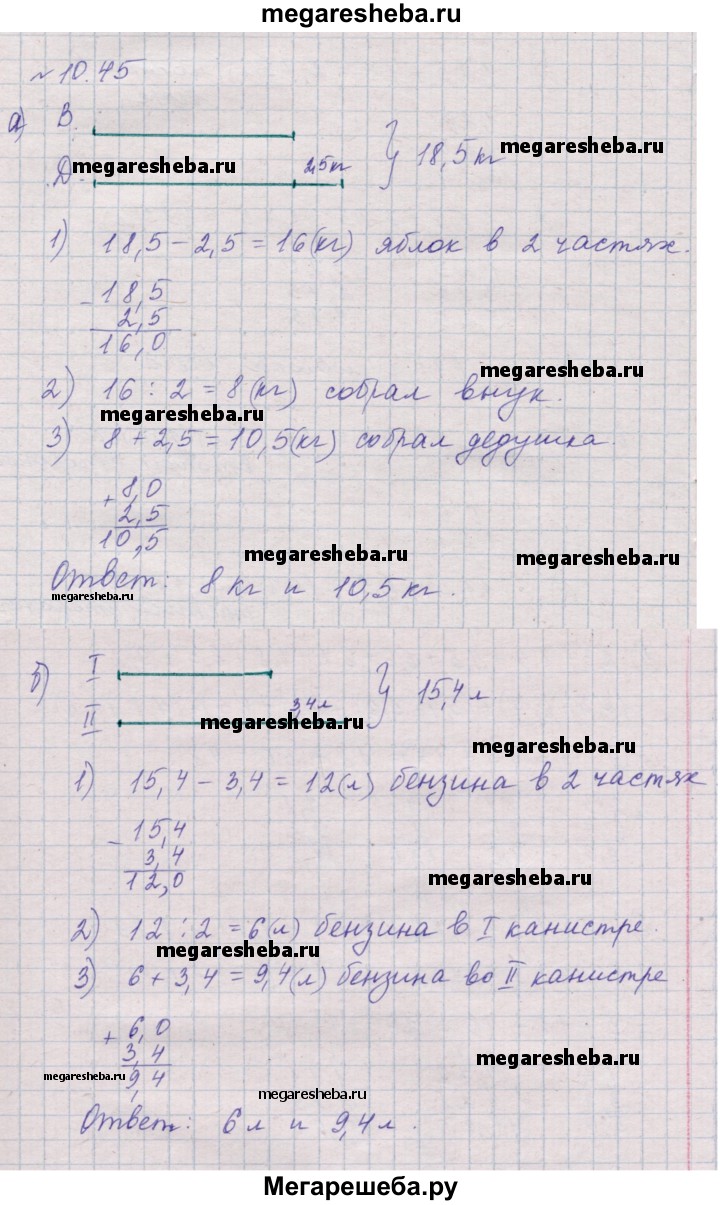 megaresheba.ru
№ 10.45
а) В. 18,5 кг megaresheba.ru
megaresheba.ru
Д. 2,5 кг
1) 18,5 – 2,5 = 16 (кг) яблок в 2 частях.
- 18,5
2,5
16,0
megaresheba.ru
2) 16 : 2 = 8 (кг) собрал внук.
megaresheba.ru
3) 8 + 2,5 = 10,5 (кг) собрал дедушка.
+ 8,0
2,5
10,5
megaresheba.ru megaresheba.ru
Ответ: 8 кг и 10,5 кг.
megaresheba.ru
б) I 15,4 л
II 3,4 л
megaresheba.ru
megaresheba.ru
1) 15,4 – 3,4 = 12 (л) бензина в 2 частях
- 15,4
3,4
12,0
megaresheba.ru
2) 12 : 2 = 6 (л) бензина в I канистре.
megaresheba.ru
3) 6 + 3,4 = 9,4 (л) бензина во II канистре
+ 6,0
3,4
9,4
megaresheba.ru
megaresheba.ru
megaresheba.ru
Ответ: 6 л и 9,4 л.
Мегарешеба.ру